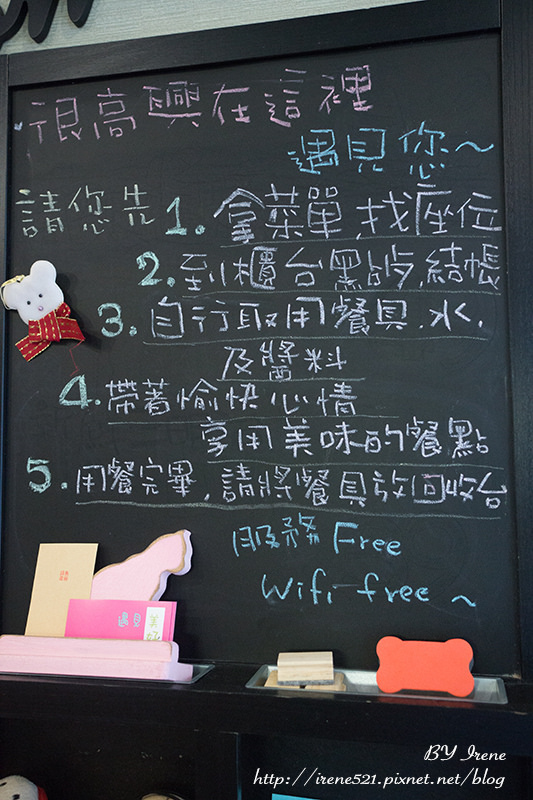 很高興在這裡
遇見您～
請您先 1. 拿菜單,找座位
2. 到櫃台點餐,結帳
3. 自行取用餐具.水.
及醬料
4. 帶著愉快心情
享用美味的餐點
5. 用餐完畢,請將餐具放回收台
服務 Free
Wifi free ~
遇見
美好
BY Irene
http://irene521.pixnet.net/blog